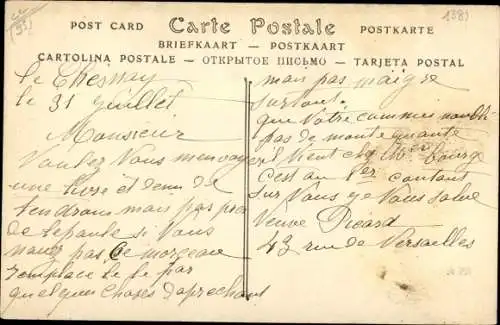 POST CARD Carte Postale POSTKARTE
BRIEFKAART — POSTKAART
CARTOLINA POSTALE — ОТКРЫТОЕ ПИСЬМО — TARJETA POSTAL
1389
le Chesnay
le 31 Juillet
Monsieur
Voulez Vous menvoyer
une livre et demi de
tendrons mais pas pres
de lepaule si Vous
navez pas ce morceau
remplace le par
quelque choses daprechant
mais pas maigre
surtout.
que Votre commis noubli
pas de monte quante
il vient chez
cest au 1er contant
sur Vous je Vous salue
Veuve Picard
43 rue de Versailles